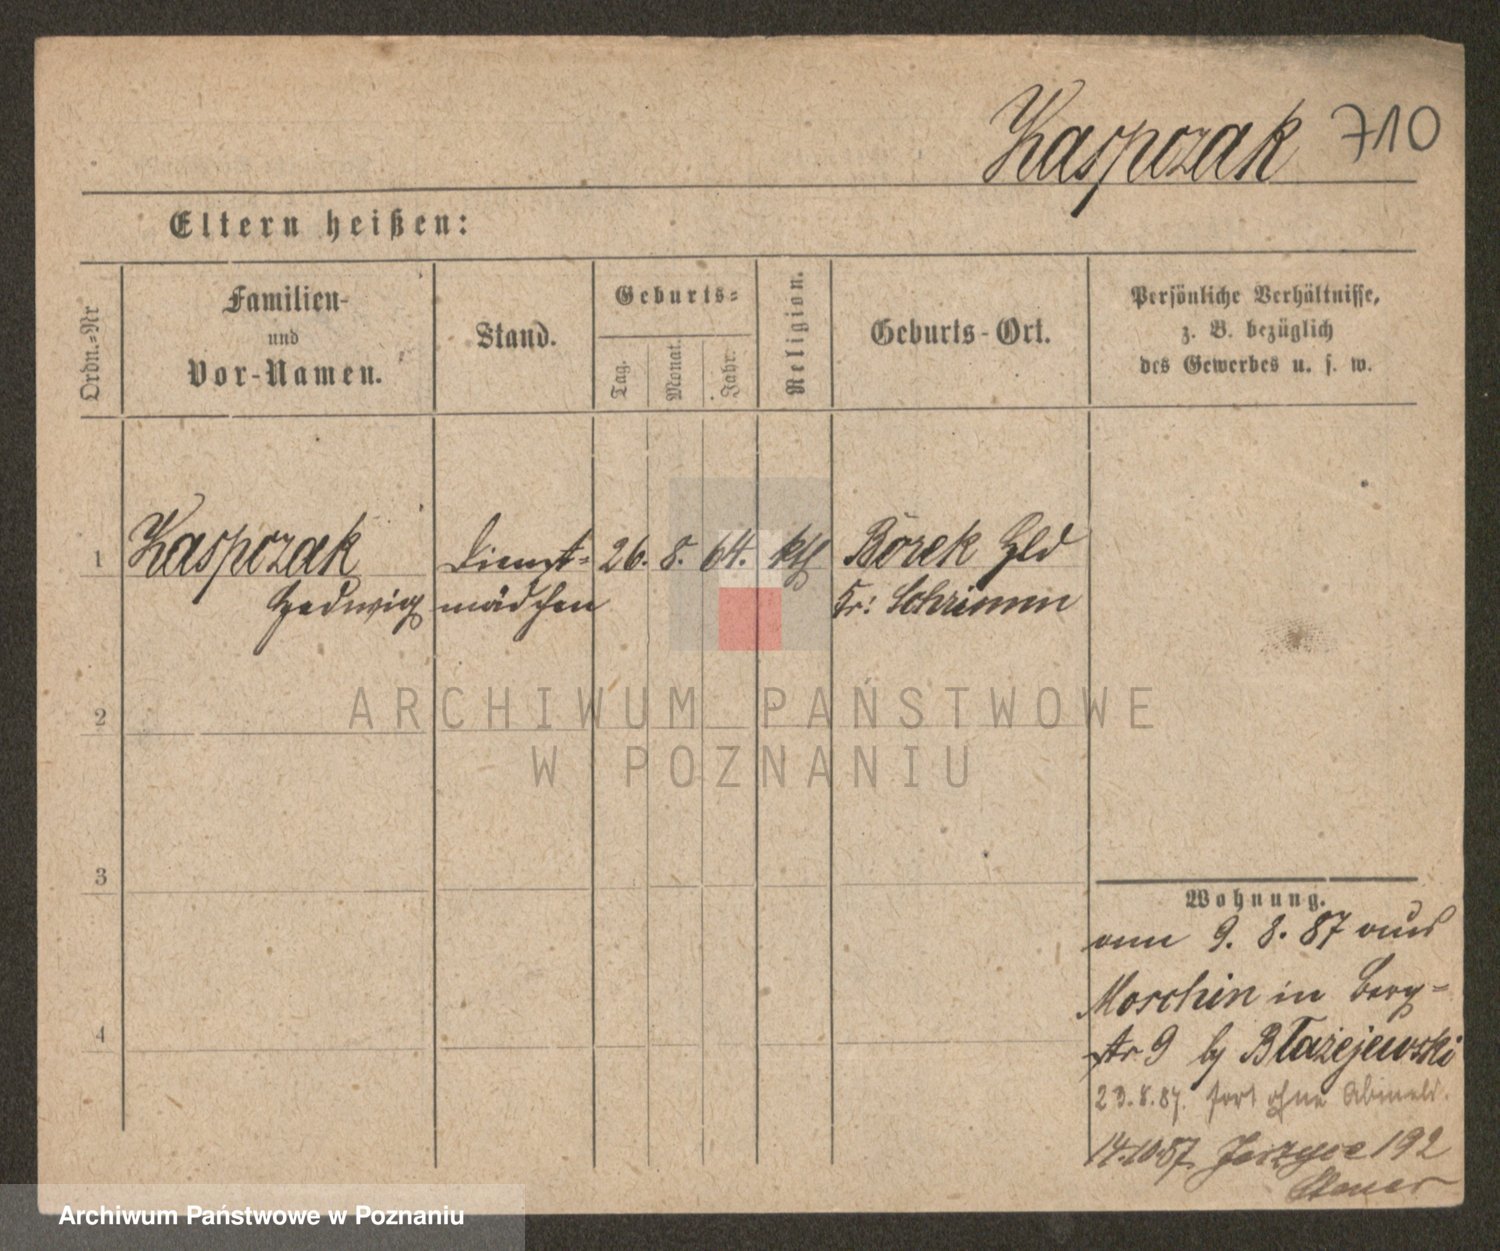 Kasprzak 710
Eltern heißen:
Ordn.=Nr
Familien-
und
Vor-Namen.
Stand.
Geburts=
Tag.
Monat.
Jahr.
Religion.
Geburts-Ort.
Persönliche Verhältnisse,
z. B. bezüglich
des Gewerbes u. s. w.
1 Kaspczak Dienst= 26. 8. 64. kth Borek Hld
Hedwig mädchen Kr: Schrimm
2
ARCHIWUM PAŃSTWOWE
W POZNANIU
3
Wohnung.
vom 9. 8. 87 aus
Moschin in Berg-
str 9 by Błażejewski
4
23.8.87. fort ohne Abmeld.
14.10.87. Jerzyce 192
Archiwum Państwowe w Poznaniu